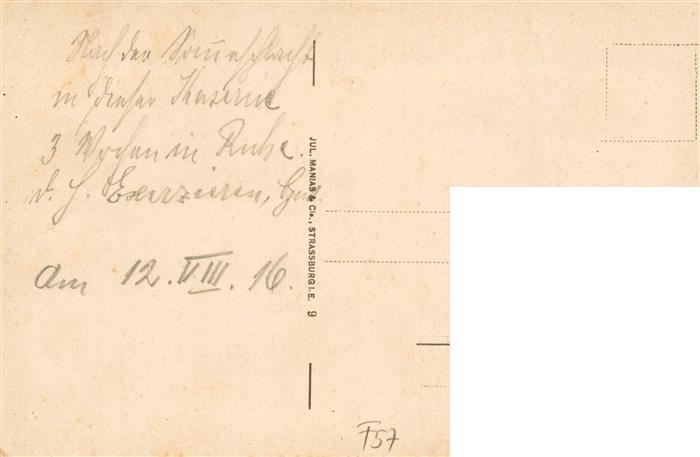 Nach der Sommeschlacht
in dieser Kaserne
3 Wochen in Ruhe.
d. h. Exerzieren,
am 12. VIII. 16.
JUL. MANIAS & Cie., STRASSBURG I. E. 9
F57